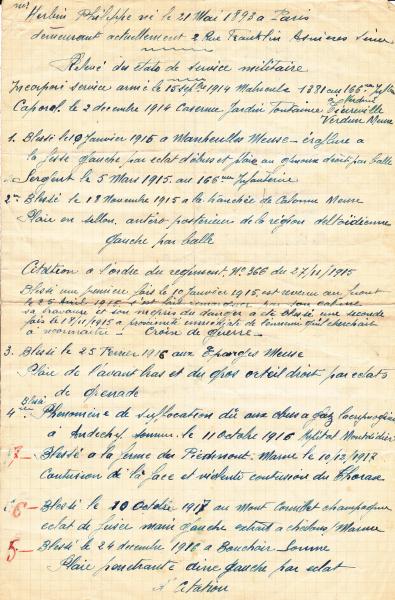 Verbin Philippe né le 21 Mai 1893 a Paris
demeurant actuellement 2 Rue Franklin Asnieres Seine
Relevé des etats de service militaire
Incorporé service armé le 15 sept 1914 Matricule 1331 au 166
Caporal le 2 decembre 1914 Caserne Jardin Fontaine Verdun Meuse
1. Blessé le 19 Janvier 1915 a Manheulles Meuse - eraflure a
la fesse gauche par eclat d'obus et plaie au genoux droit par balle
Sergent le 5 Mars 1915 au 166 Infanterie
2 Blessé le 18 Novembre 1915 a la tranchée de Calonne Meuse
Plaie en sillon antéro-posterieur de la région deltoïdienne
gauche par balle
Citation a l'ordre du regiment No 366 du 27/11/1915
Blessé une premiere fois le 19 Janvier 1915, est revenu au front
le 25 Avril 1915 s'est fait remarquer par son calme
sa bravoure et son mepris du danger a été blessé une seconde
fois le 18/11/1915 a proximité immediate de l'ennemi qu'il cherchait
a reconnaitre - Croix de guerre -
3. Blessé le 25 Fevrier 1916 aux Eparges Meuse
Plaie de l'avant bras et du gros orteil droit par eclats
de grenade
4 Phenomène de suffocation dû aux obus a gaz lacrymogène
à Andechy, Somme, le 11 Octobre 1916 Hôpital Montdidier
7 - Blessé a la ferme du Piedmont, Marne le 10/12/1917
Contusion de la face et violente contusion du Thorax
6 - Blessé le 20 Octobre 1917 au Mont Cornillet champagne
eclat de fusée main gauche extrait a chalons, Marne
5 - Blessé le 24 decembre 1916 a Bouchoir Somme
Plaie penetrante aine gauche par eclat
Citation